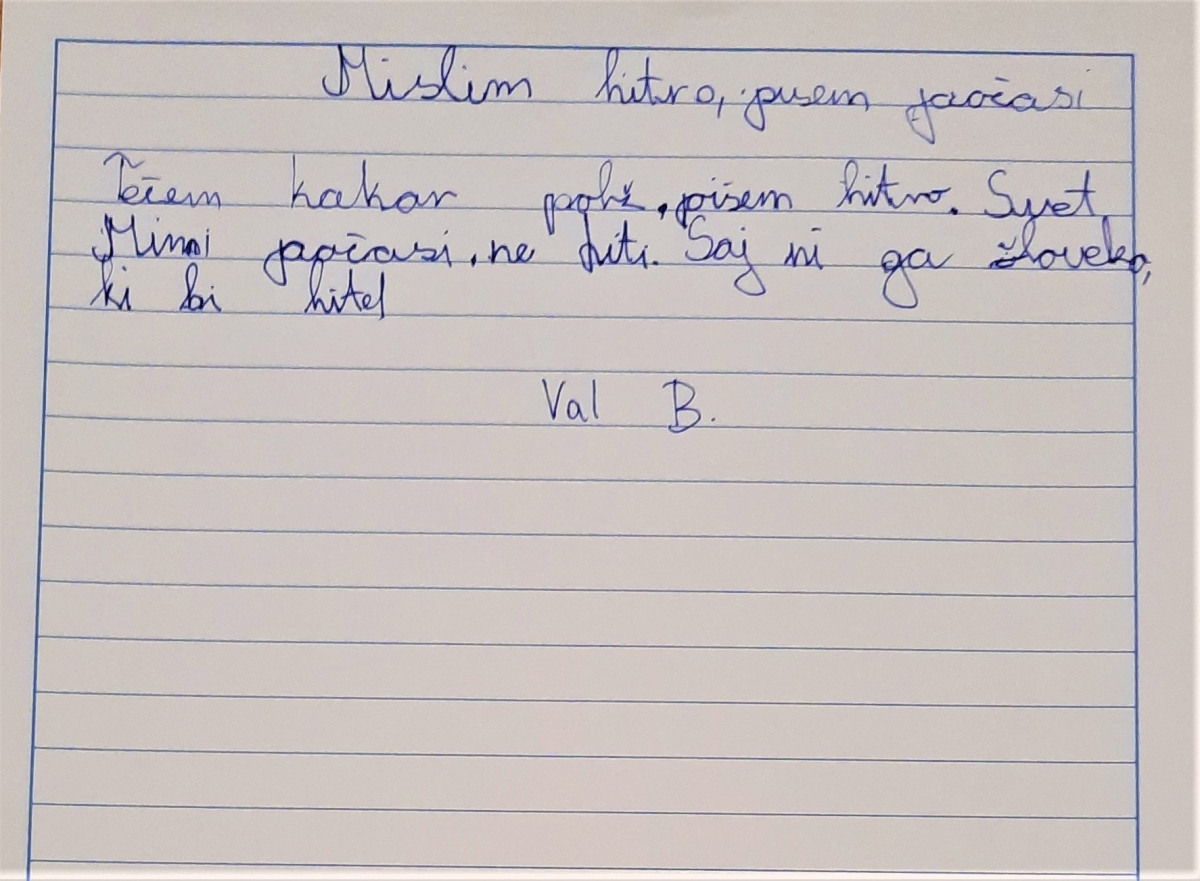 Mislim hitro, pišem počasi
Tečem kakor polž, pišem hitro. Svet
Mimi počasi, ne hiti. Saj ni ga človeka,
ki bi hitel
Val B.